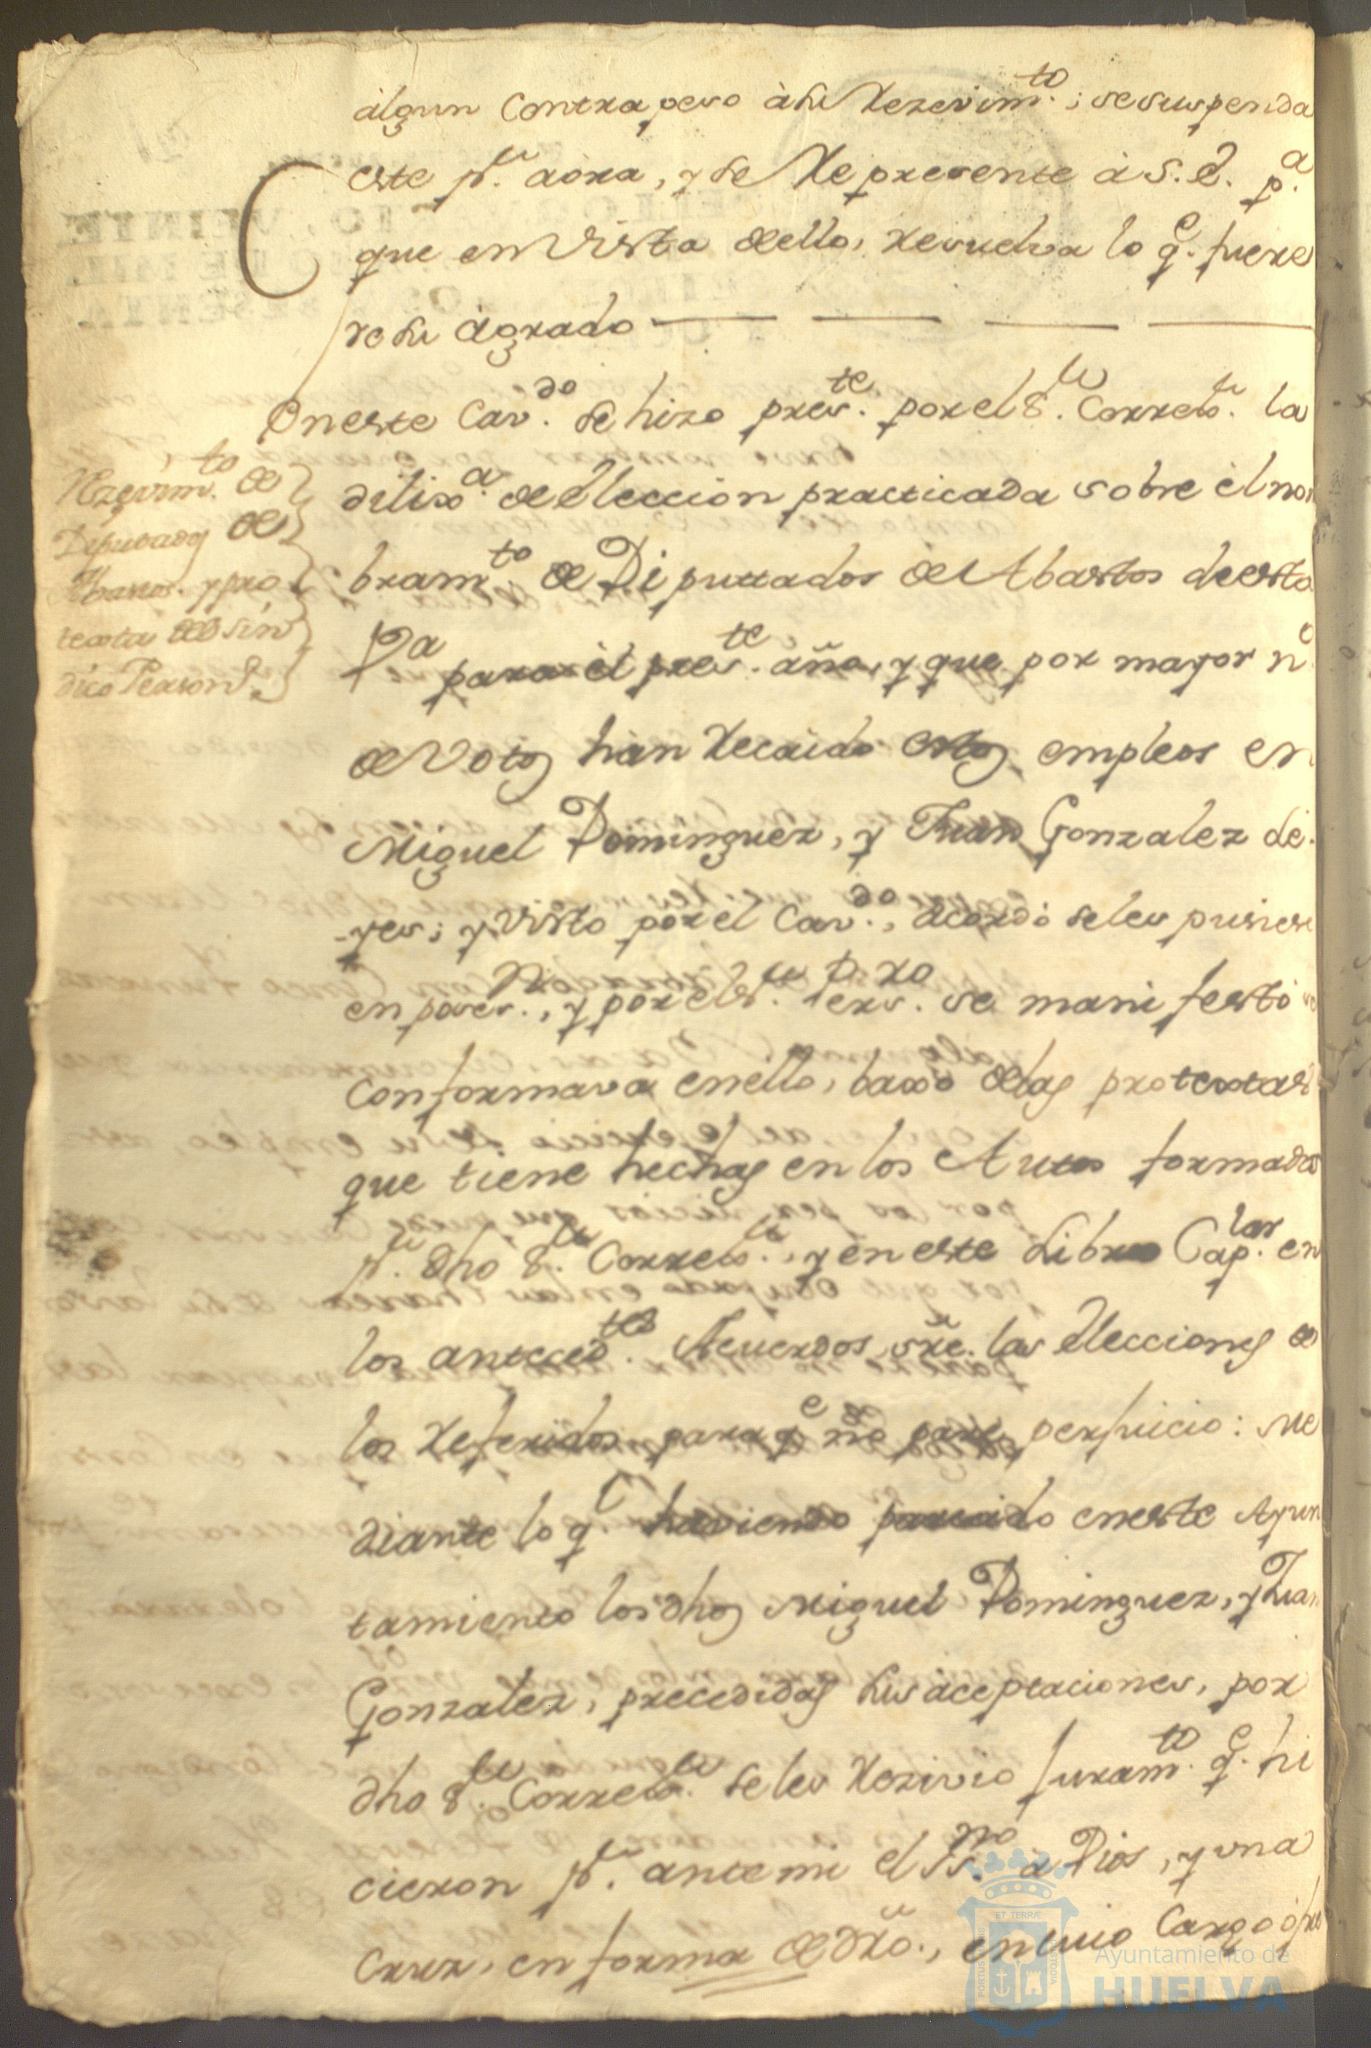 algun contrapeso à su Rezevim.to; se suspenda
este p.r aora, y se Represente à S. E. p.a
que en vista de ello, Resuelva lo q.e fuere
de su àgrado
En este Cav.do se hizo pres.te por el S.r Correx.r la
dilix.a de Eleccion practicada sobre èl nom
bram.to de Diputtados de Abastos de esta
V.a para èl pres.te año, y que por mayor n.o
de Votos han Recaido estos empleos en
Miguel Dominguez, y Juan Gonzalez de
yes; y visto por el Cav.do, acordò se les pusiese
en poses.n, y por el S.r Pers.ro se manifestò se
conformava en ello, baxo de las protextas
que tiene hechas en los Autos formados
p.r dho S.r Correx.r, y en este Libro Cap.lar en
los anteced.tes Acuerdos, sre. las Elecciones de
los Referidos para q.e no pare perjuicio: Me
diante lo q.l haviendo parecido en este Ayun
tamiento los dhos Miguel Dominguez, y Juan
Gonzalez, precedidas sus àceptaciones, por
dho S.r Correx.r se les Rezivio juram.to q.e hi
cieron p.r ante mi el Ss.no à Dios, y una
Cruz, en forma de dro., en cuio Cargo
Rezevim.to de
Diputados de
Abastos. y pro
texta del Sin
dico Person.o
ET TERRÆ
PORTUS
CUSTODIA
Ayuntamiento de
HUELVA